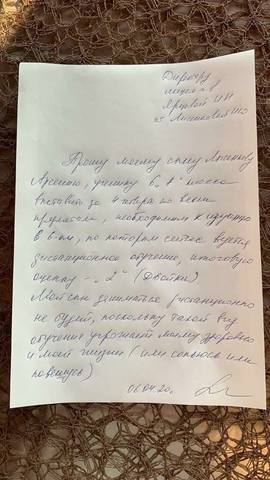 Директору
лицея
от
Прошу моему сыну
Арсению, ученику 6 "А" класса
выставить за 4 четверть по всем
предметам, необходимым к аудиту
в 6-ом, по которым сейчас ведется
дистанционное обучение, итоговую
оценку - "2" (Двойки)
Мой сын заниматься дистанционно
не будет, поскольку такой вид
обучения угрожает моему здоровью
и моей жизни (или сопьюсь или
повешусь)
06.04.20г.